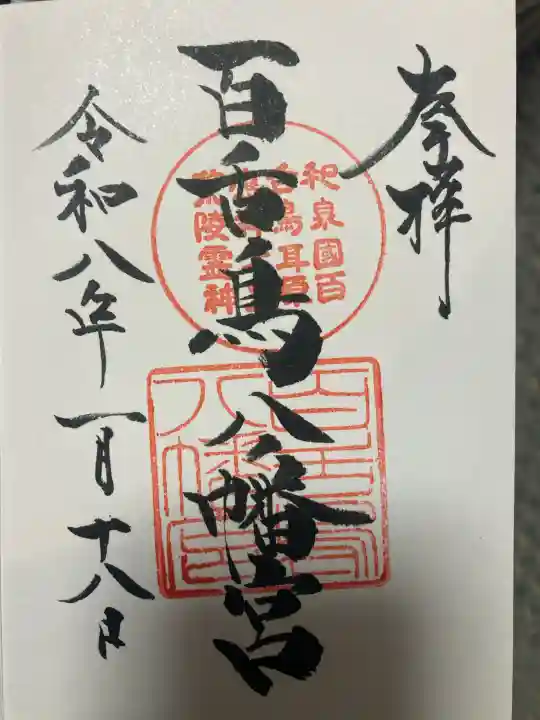 奉拝
百舌鳥八幡宮
和泉國百
舌鳥耳原
陵霊神
百舌鳥
八幡宮
令和八年一月十八日